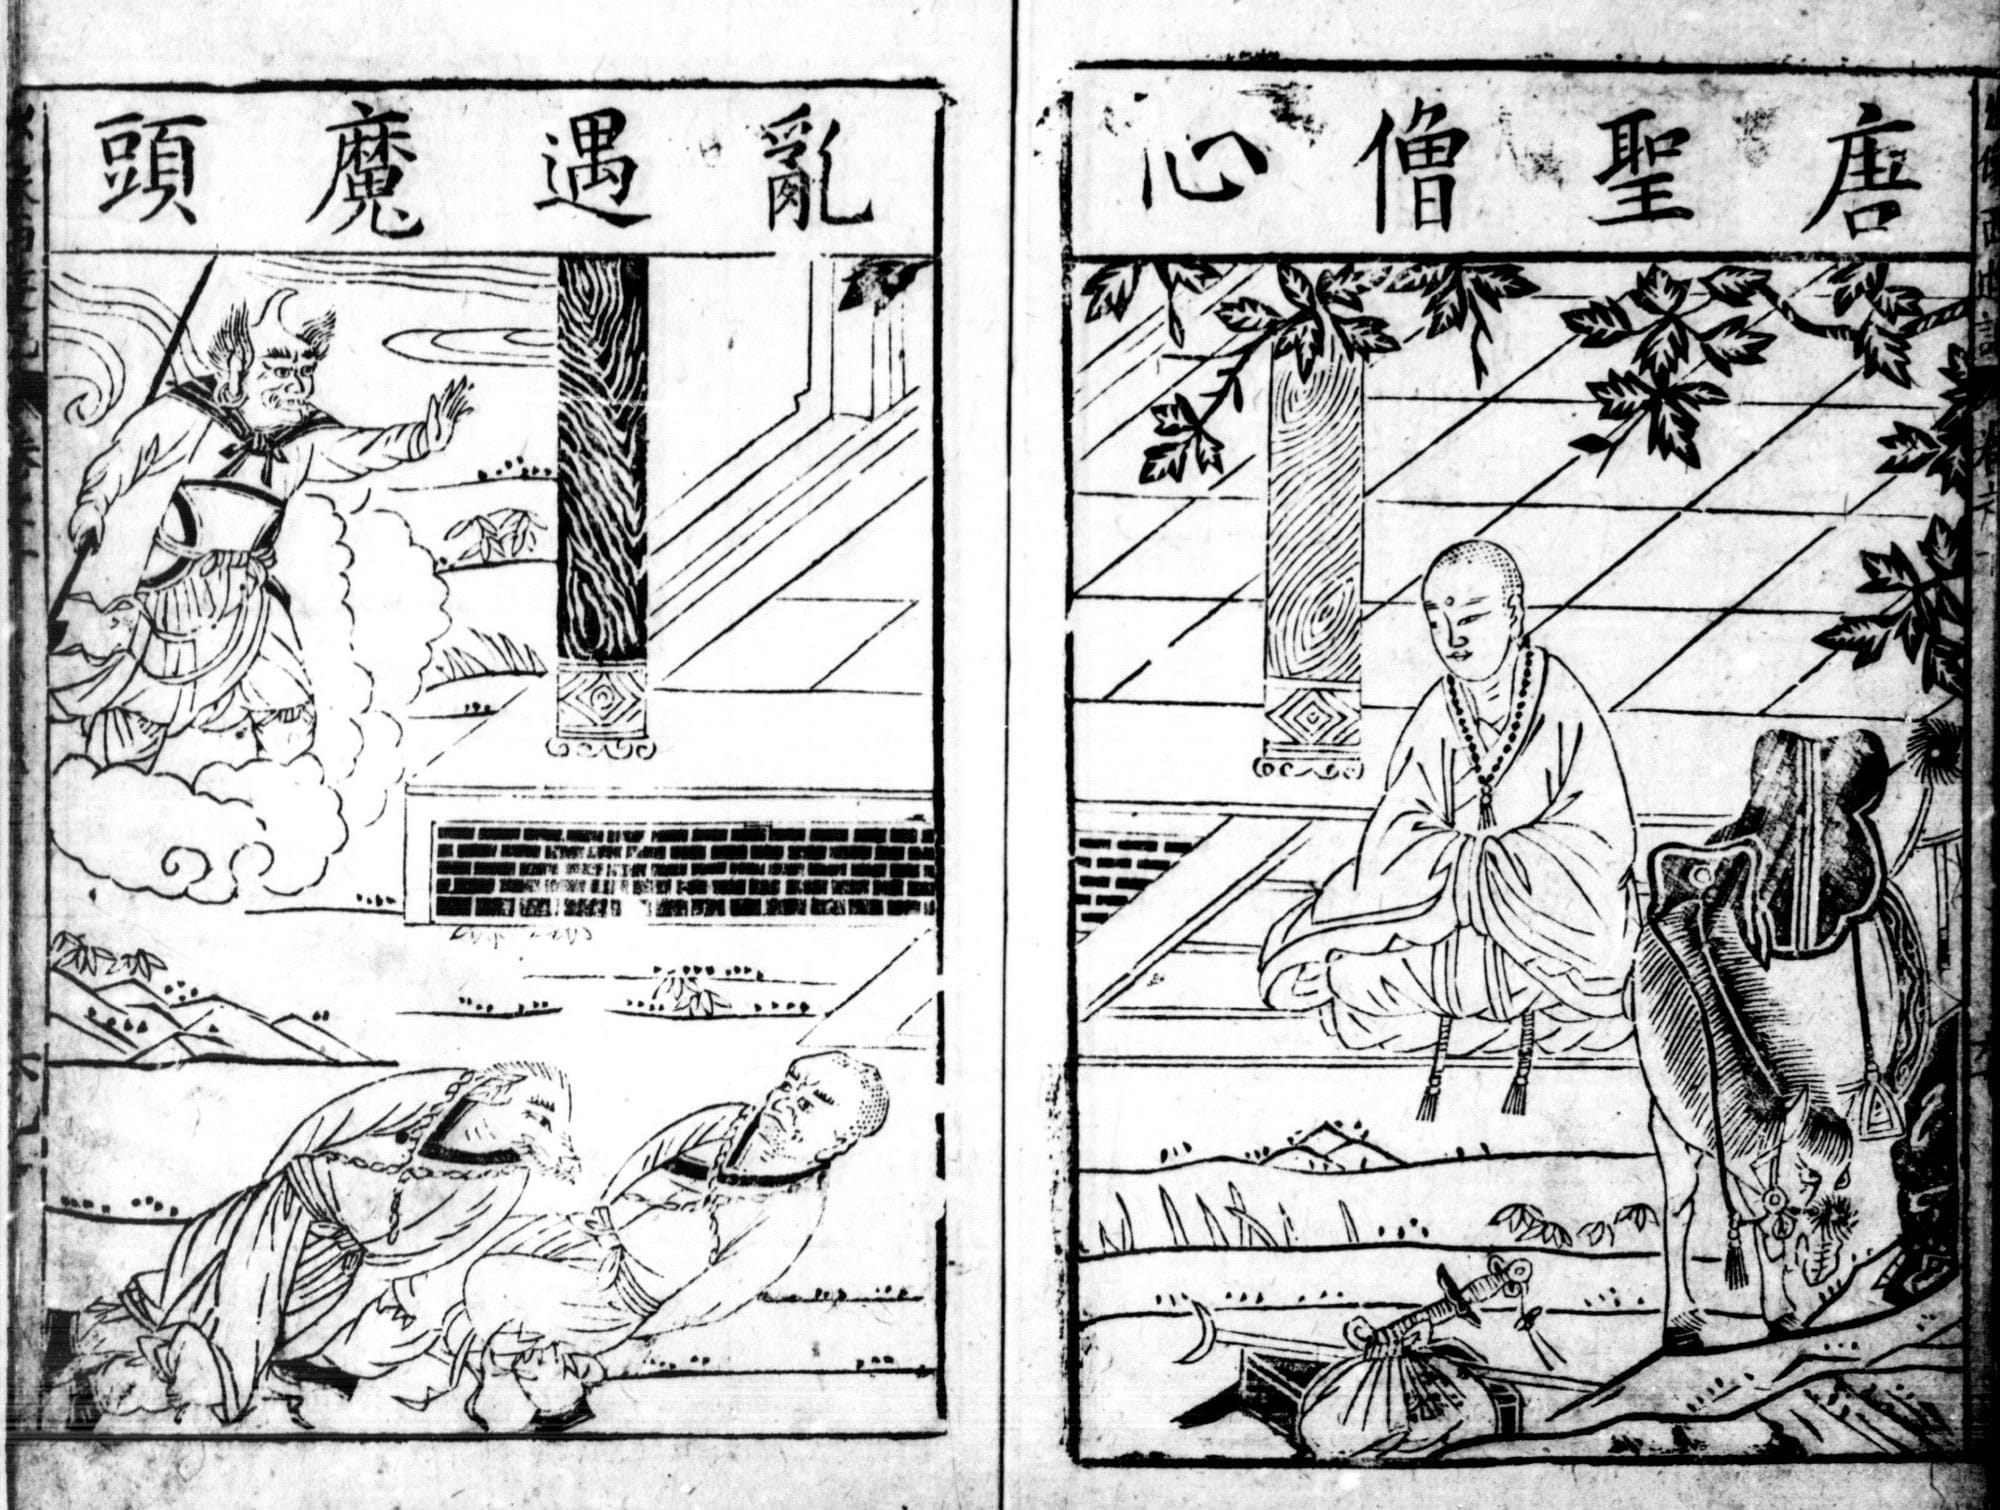 唐聖僧心
亂遇魔頭